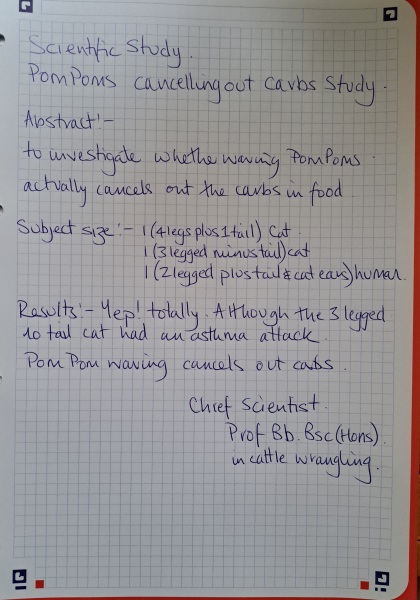 Scientific Study.
PomPoms cancelling out carbs Study.
Abstract:-
to investigate whether waving PomPoms
actually cancels out the carbs in food
Subject size:- 1 (4 legs plus 1 tail) Cat
1 (3 legged minus tail) cat
1 (2 legged plus tail & cat ears) human.
Results:- Yep! totally. Although the 3 legged
no tail cat had an asthma attack.
PomPom waving cancels out carbs.
Chief Scientist.
Prof Bb. Bsc (Hons).
in cattle wrangling.